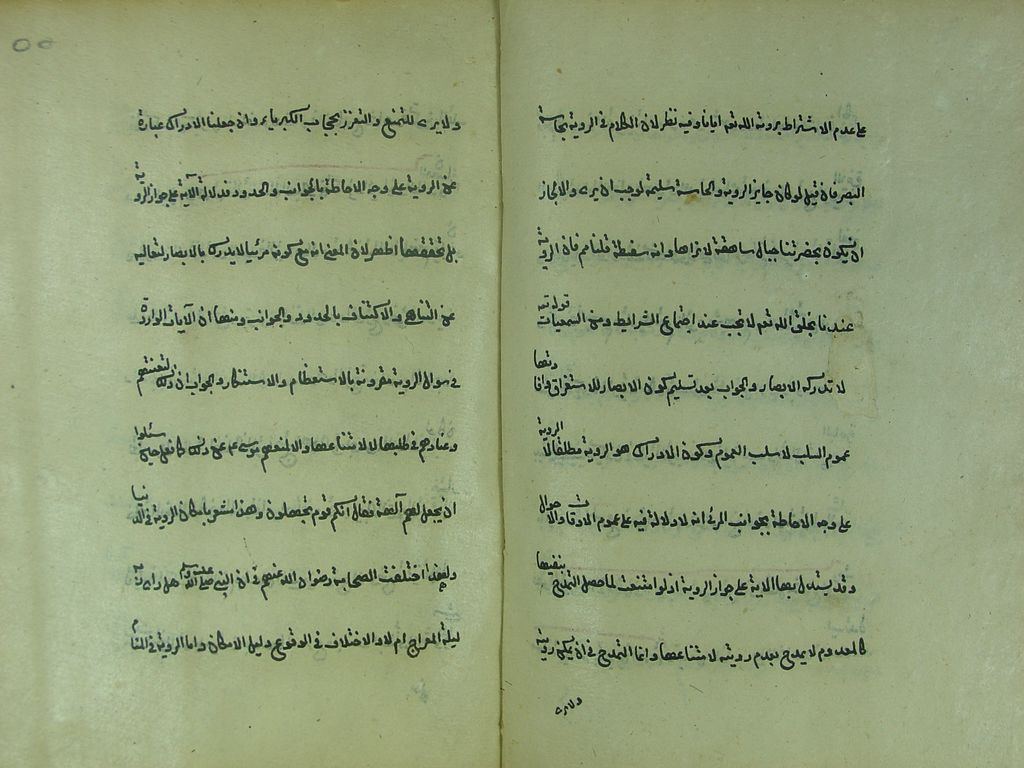 على عدم الاشتراط برؤية الله تعه ايانا وفيه نظر لان الكلام في الروية بحاسة
البصر فان قيل لو كان جايز الروية والحاسة سليمة لوجب ان يرى والا لجاز
ان يكون بحضرتنا جبال ساهقة لا نراها وانه سفسطة قلنا مم فان الروية
عندنا بخلق الله تعه لا تجب عند اجتماع الشرايط ومن السمعيات قوله تعه
لا تدركه الابصار والجواب بعد تسليم كون الابصار للاستغراق وافادتها
عموم السلب لا سلب العموم وكون الادراك هو الروية مطلقا لا الروية
على وجه الاحاطة بجوانب المرئي انه لا دلالة فيه على عموم الاوقات والاحوال
وقد يستدل بهذا الاية على جواز الروية اذ لو امتنعت لما حصل التمدح بنفيها
كالمعدوم لا يمدح بعدم رويته لامتناعها وانما التمدح في ان يمكن رويته
ولا يرى
ولا يرى للتمنع والتعزز بحجاب الكبرياء وان جعلنا الادراك عبارة
عن الروية على وجه الاحاطة بالجوانب والحدود فدلالة الآية على جواز الروية
بل تحققها اظهر لان المعنى انه مع كونه مرئيا لا يدرك بالابصار لتعاليه
عن التناهي والاكتناف بالحدود والجوانب ومنها ان الآيات الواردة
في سوال الروية مقرونة بالاستعظام والاستنكار والجواب ان ذلك لتعنتهم
وعنادهم في طلبها لا لامتناعها والا لمنعهم موسى عم عن ذلك كما فعل حين سئلوا
ان يجعل لهم آلهة فقال انكم قوم تجهلون وهذا مشعر بامكان الروية في الدنيا
ولهذا اختلفت الصحابة رضوان الله عنهم في ان النبي صلى الله عليه وسلم هل راى ربه
ليلة المعراج ام لا والاختلاف في الوقوع دليل الامكان واما الروية في المنام